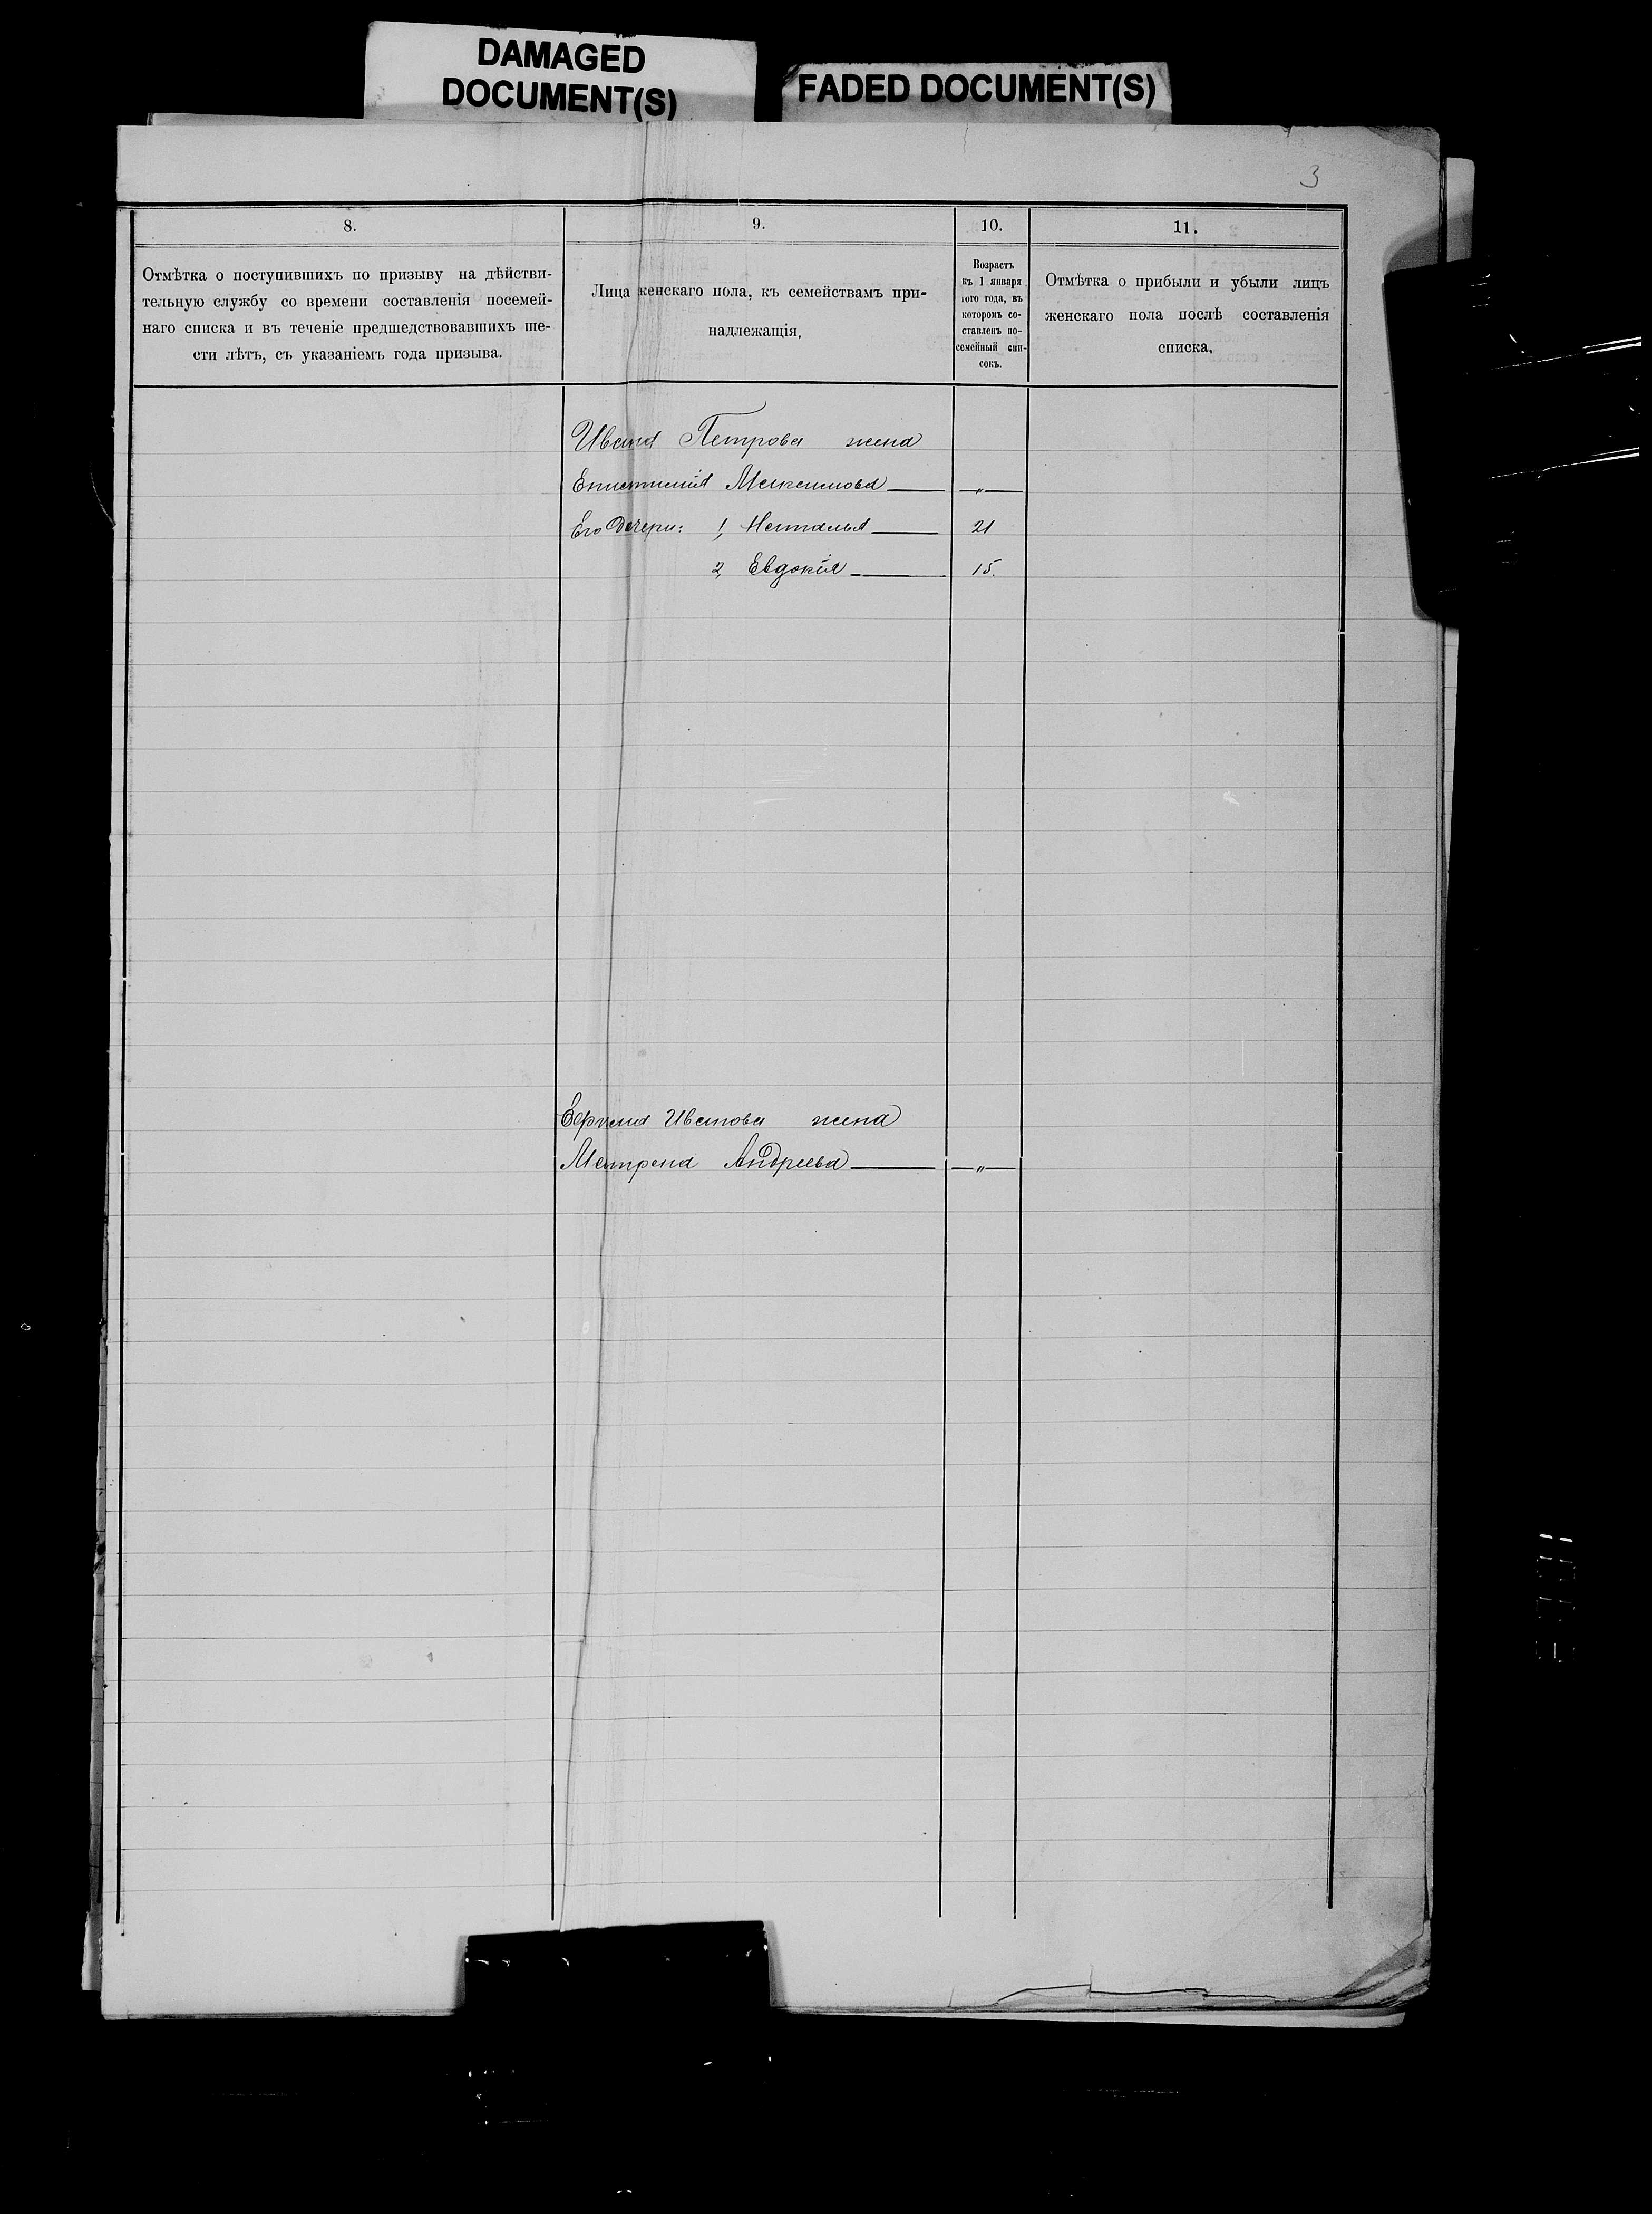 DAMAGED
DOCUMENT(S)
FADED DOCUMENT(S)
3
8.
Отмѣтка о поступившихъ по призыву на дѣйстви-
тельную службу со времени составленія посемей-
наго списка и въ теченіе предшедствовавшихъ ше-
сти лѣтъ, съ указаніемъ года призыва.
9.
Лица женскаго пола, къ семействамъ при-
надлежащія,
10.
Возрастъ
къ 1 января
того года, въ
которомъ со-
ставленъ по-
семейный спи-
сокъ.
11.
Отмѣтка о прибыли и убыли лицъ
женскаго пола послѣ составленія
списка,
Ивана Петрова жена
Епистимія Максимова — „ —
Его дочери: 1, Наталья 21
2, Евдокія 15.
Ефрема Иванова жена
Матрена Андреева — „ —